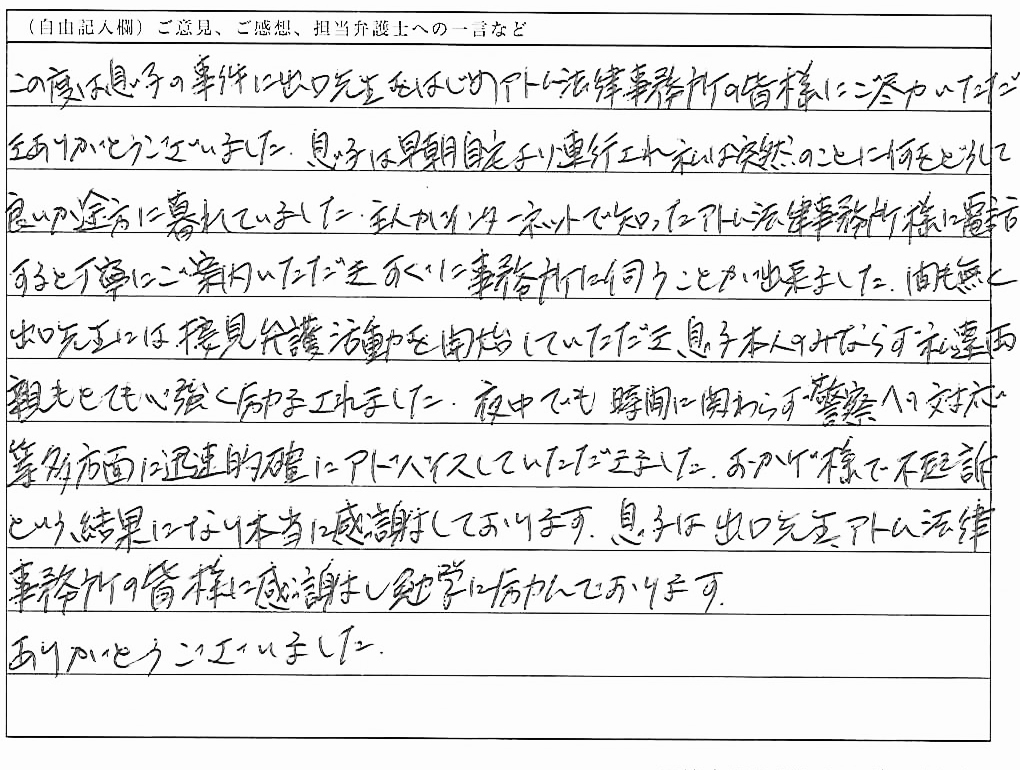 (自由記入欄)ご意見、ご感想、担当弁護士への一言など
この度は息子の事件に出口先生をはじめアトム法律事務所の皆様にご尽力いただ
きありがとうございました。息子は早朝自宅より連行され私は突然のことに何をどうして
良いか途方に暮れていました。主人がインターネットで知ったアトム法律事務所様に電話
すると丁寧にご案内いただきすぐに事務所に伺うことが出来ました。間も無く
出口先生には接見弁護活動を開始していただき、息子本人のみならず私達両
親もとても心強く励まされました。夜中でも時間に関わらず警察への対応
等多方面に迅速的確にアドバイスしていただきました。おかげ様で不起訴
という結果になり本当に感謝しております。息子は出口先生、アトム法律
事務所の皆様に感謝し勉学に励んでおります。
ありがとうございました。